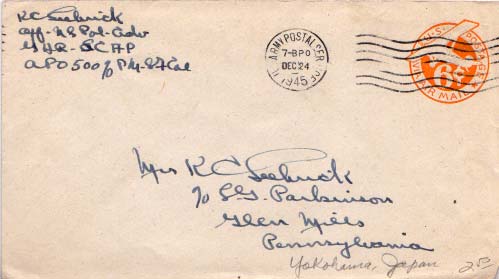 R C Seebrick
Off-US Pol-Adv
GHQ-SCAP
APO 500 c/o PM-SF Cal
U.S. ARMY POSTAL SER.
7-BPO
DEC 24
1945
U.S. POSTAGE
6¢
VIA AIR MAIL
Mrs R C Seebrick
c/o S G Parkinson
Glen Mills
Pennsylvania
Yokohama, Japan